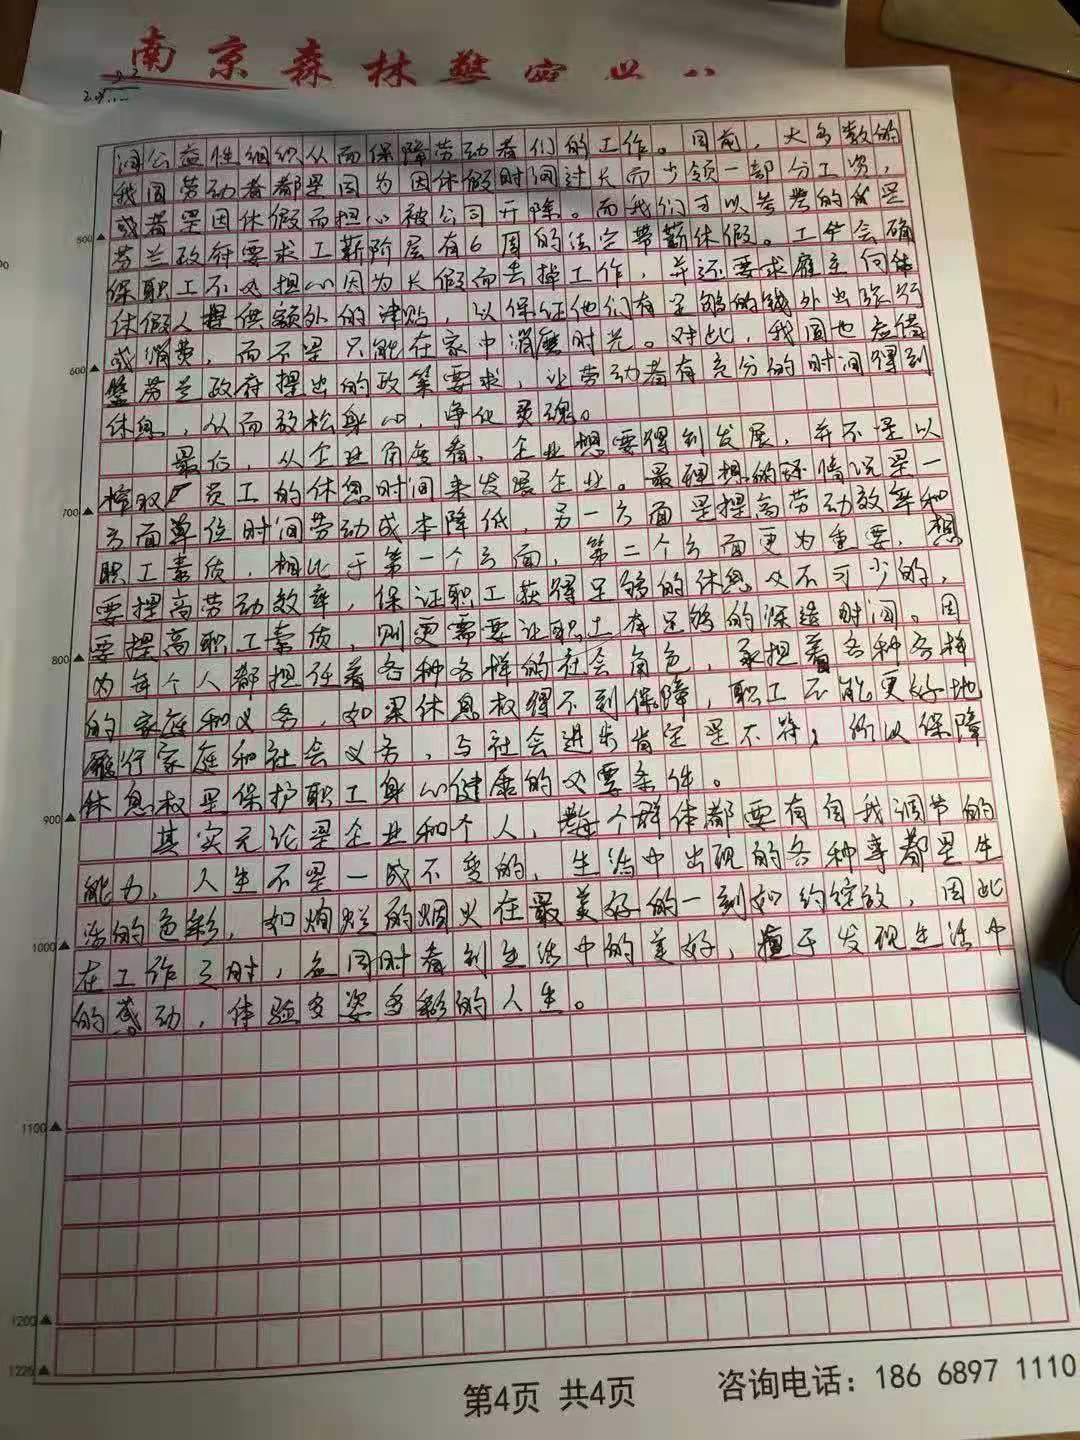 南京森林警察
润公益性组织从而保障劳动者们的工作。目前，大多数的
我国劳动者都是因为因休假时间过长而少领一部分工资，
或者是因休假而担心被公司开除。而我们可以参考的是
500
芬兰政府要求工薪阶层有6周的法定带薪休假。工会确
保职工不必担心因为长假而丢掉工作，并还要求雇主向休
休假人提供额外的津贴，以保证他们有足够的钱外出旅行
或消费，而不是只能在家中消磨时光。对此，我国也应借
600
鉴芬兰政府提出的政策要求，让劳动者有充分的时间得到
休息，从而放松身心，净化灵魂。
最后，从企业角度看，企业想要得到发展，并不是以
榨取员工的休息时间来发展企业。最理想的环情况是一
700
方面单位时间劳动成本降低，另一方面是提高劳动效率和
职工素质，相比于第一个方面，第二个方面更为重要，想
要提高劳动效率，保证职工获得足够的休息必不可少的，
要提高职工素质，则更需要让职工有足够的深造时间。因
800
为每个人都担任着各种各样的社会角色，承担着各种各样
的家庭和义务，如果休息权得不到保障，职工不能更好地
履行家庭和社会义务，与社会进步肯定是不符，所以保障
休息权是保护职工身心健康的必要条件。
900
其实无论是企业和个人，每个群体都要有自我调节的
能力，人生不是一成不变的，生活中出现的各种事都是生
活的色彩，如绚烂的烟火在最美好的一刻如约绽放，因此
1000
在工作之时，应同时看到生活中的美好，擅于发现生活中
的感动，体验多姿多彩的人生。
1100
1200
1225
第4页 共4页
咨询电话：186 6897 1110